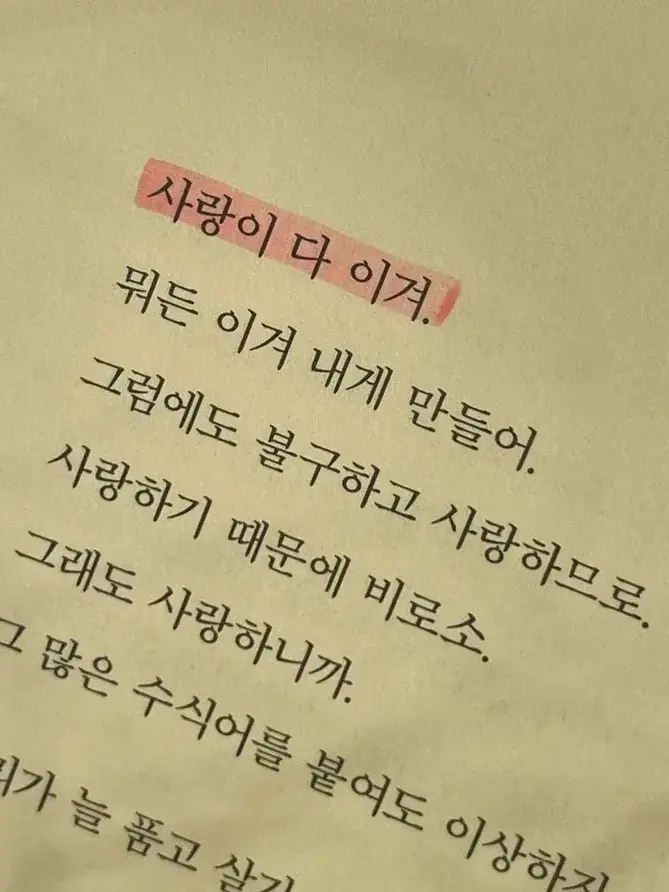 사랑이 다 이겨.
뭐든 이겨 내게 만들어.
그럼에도 불구하고 사랑하므로.
사랑하기 때문에 비로소.
그래도 사랑하니까.
그 많은 수식어를 붙여도
늘 품고